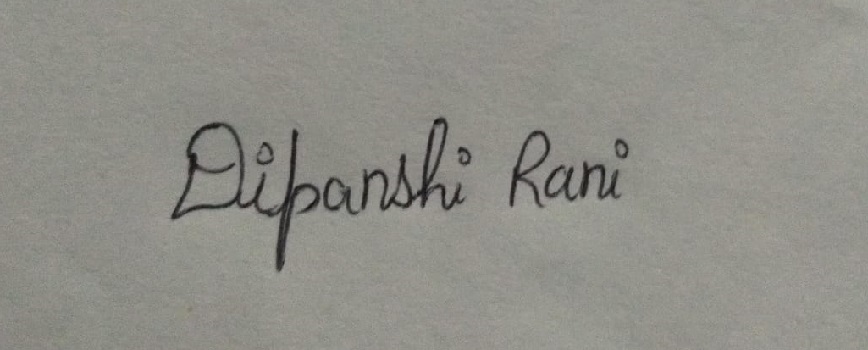 Dipanshi Rani